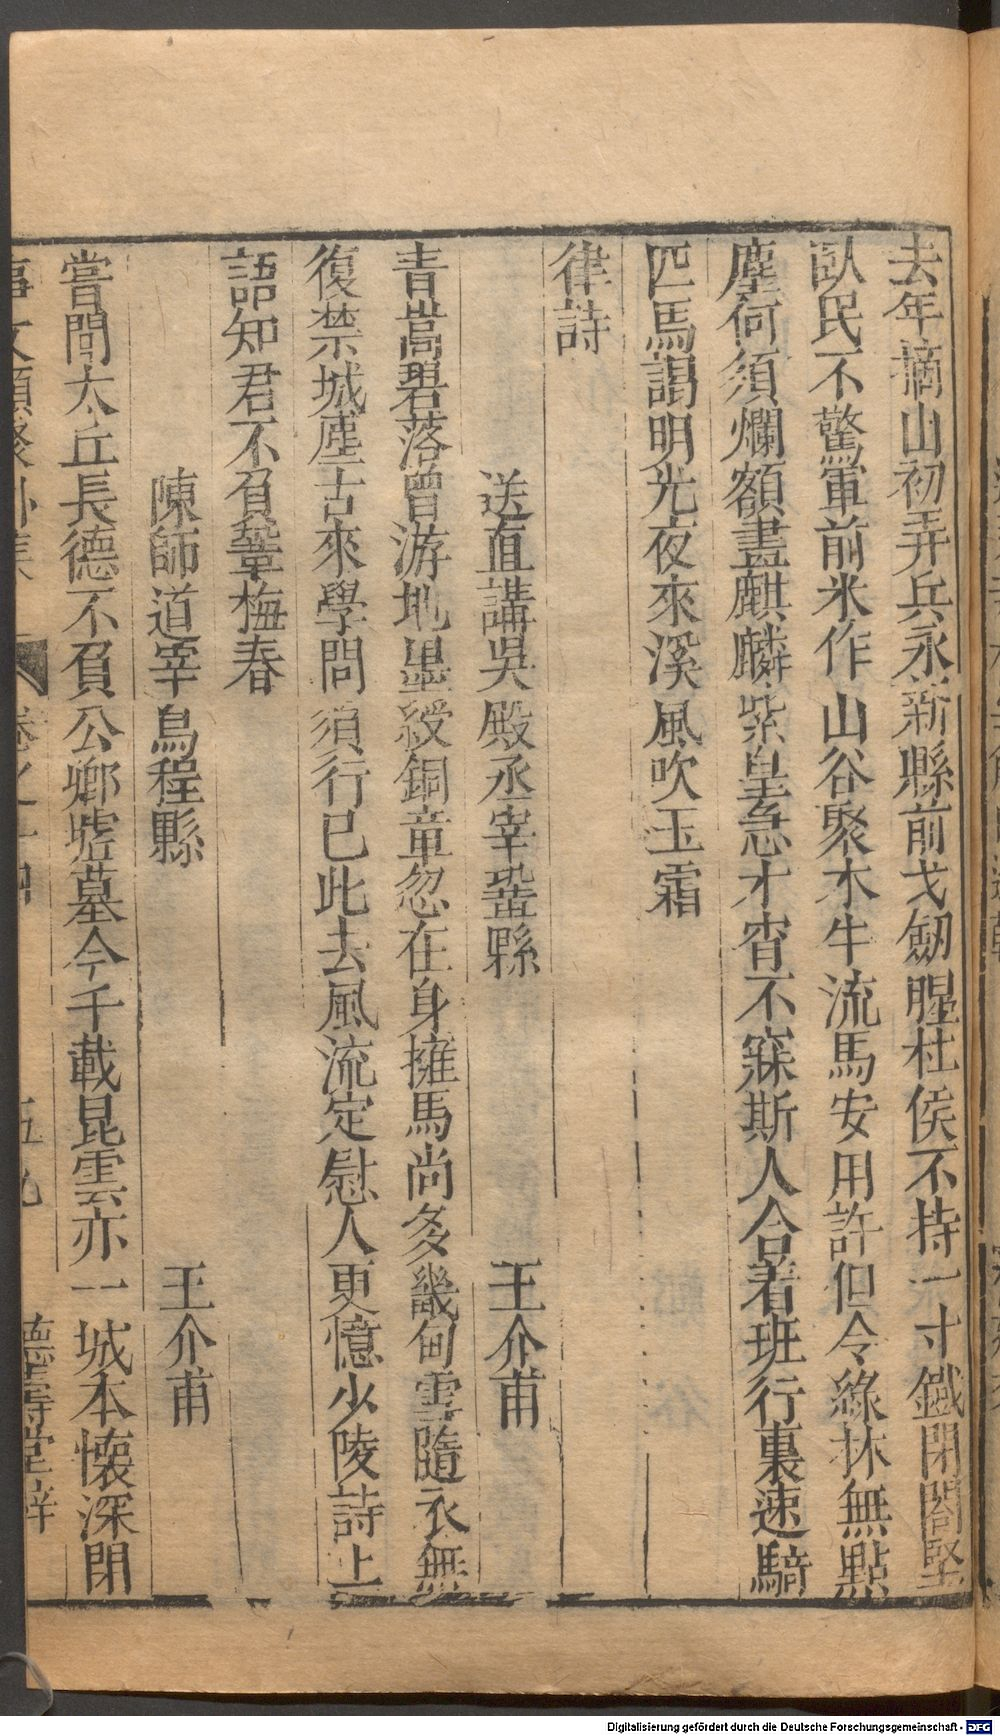 去年摘山初弄兵永新縣前戈劒腥杜侯不持一寸鐵閉閤堅
臥民不驚軍前米作山谷聚木牛流馬安用許但令綠林無點
塵何須爛額畫麒麟紫皇急才宵不寐斯人合著班行裏速騎
匹馬謁明光夜來溪風吹玉霜
律詩
送直講吳殿丞宰鞏縣 王介甫
青嵩碧落曾游地墨綬銅章忽在身擁馬尚多畿甸雪隨衣無
復禁城塵古來學問須行已此去風流定慰人更憶少陵詩上
語知君不負鞏梅春
陳師道宰烏程縣 王介甫
嘗問太丘長德不負公卿墟墓今千載昆雲亦一城本懷深閉
事文類聚外集 卷之十四 五九 德壽堂梓
Digitalisierung gefördert durch die Deutsche Forschungsgemeinschaft - DFG